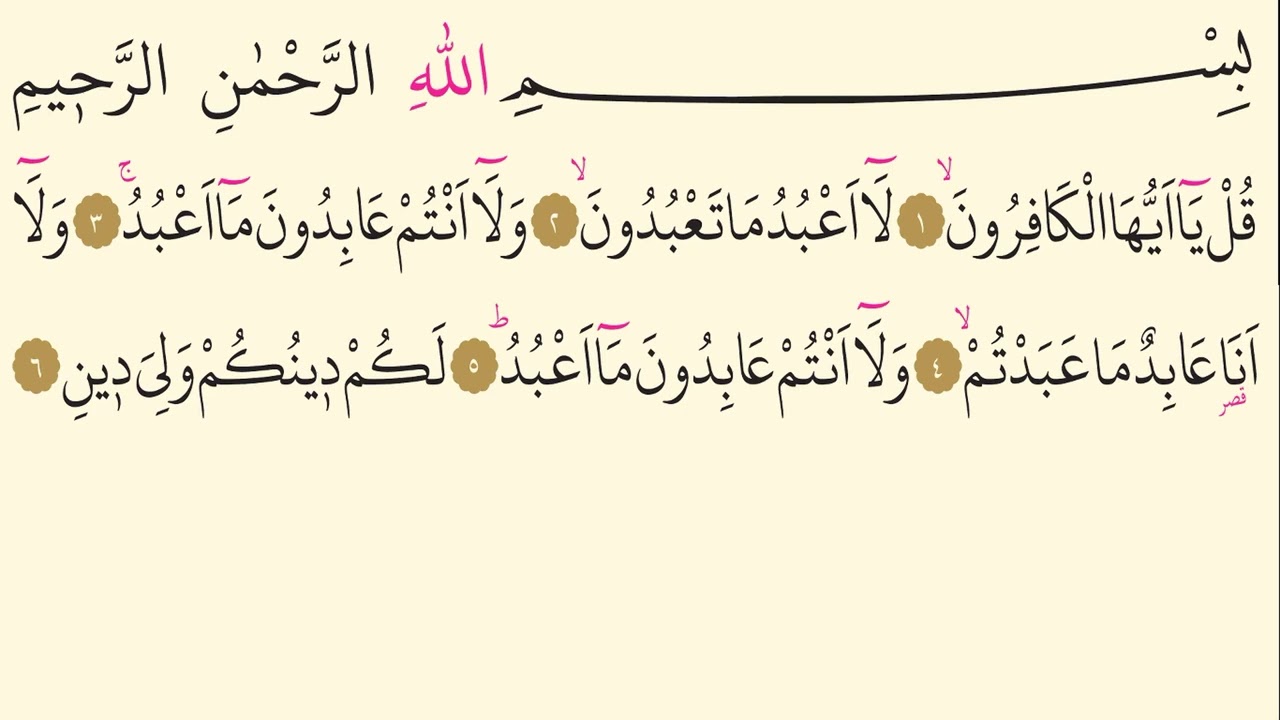 بِسْمِ اللّٰهِ الرَّحْمٰنِ الرَّحٖيمِ
قُلْ يَٓا اَيُّهَا الْكَافِرُونَۙ ﴿١﴾ لَٓا اَعْبُدُ مَا تَعْبُدُونَۙ ﴿٢﴾ وَلَٓا اَنْتُمْ عَابِدُونَ مَٓا اَعْبُدُۚ ﴿٣﴾ وَلَٓا
اَنَا۬ قصر عَابِدٌ مَا عَبَدْتُمْۙ ﴿٤﴾ وَلَٓا اَنْتُمْ عَابِدُونَ مَٓا اَعْبُدُؕ ﴿٥﴾ لَكُمْ دٖينُكُمْ وَلِيَ دٖينِ ﴿٦﴾